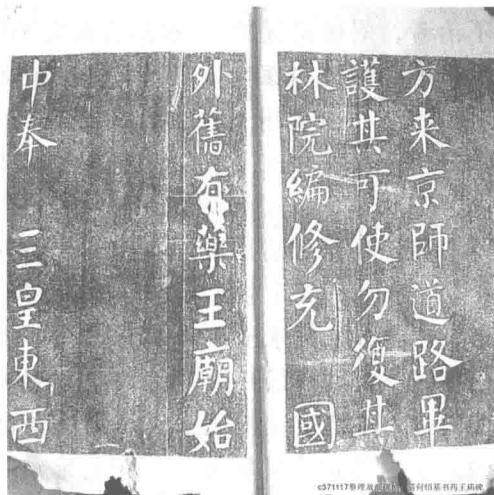 方来京師道路畢
護其可使勿復
林院編修充 國
外舊有藥王廟始
中奉 三皇東西
c371117整理 何绍基书药王庙碑